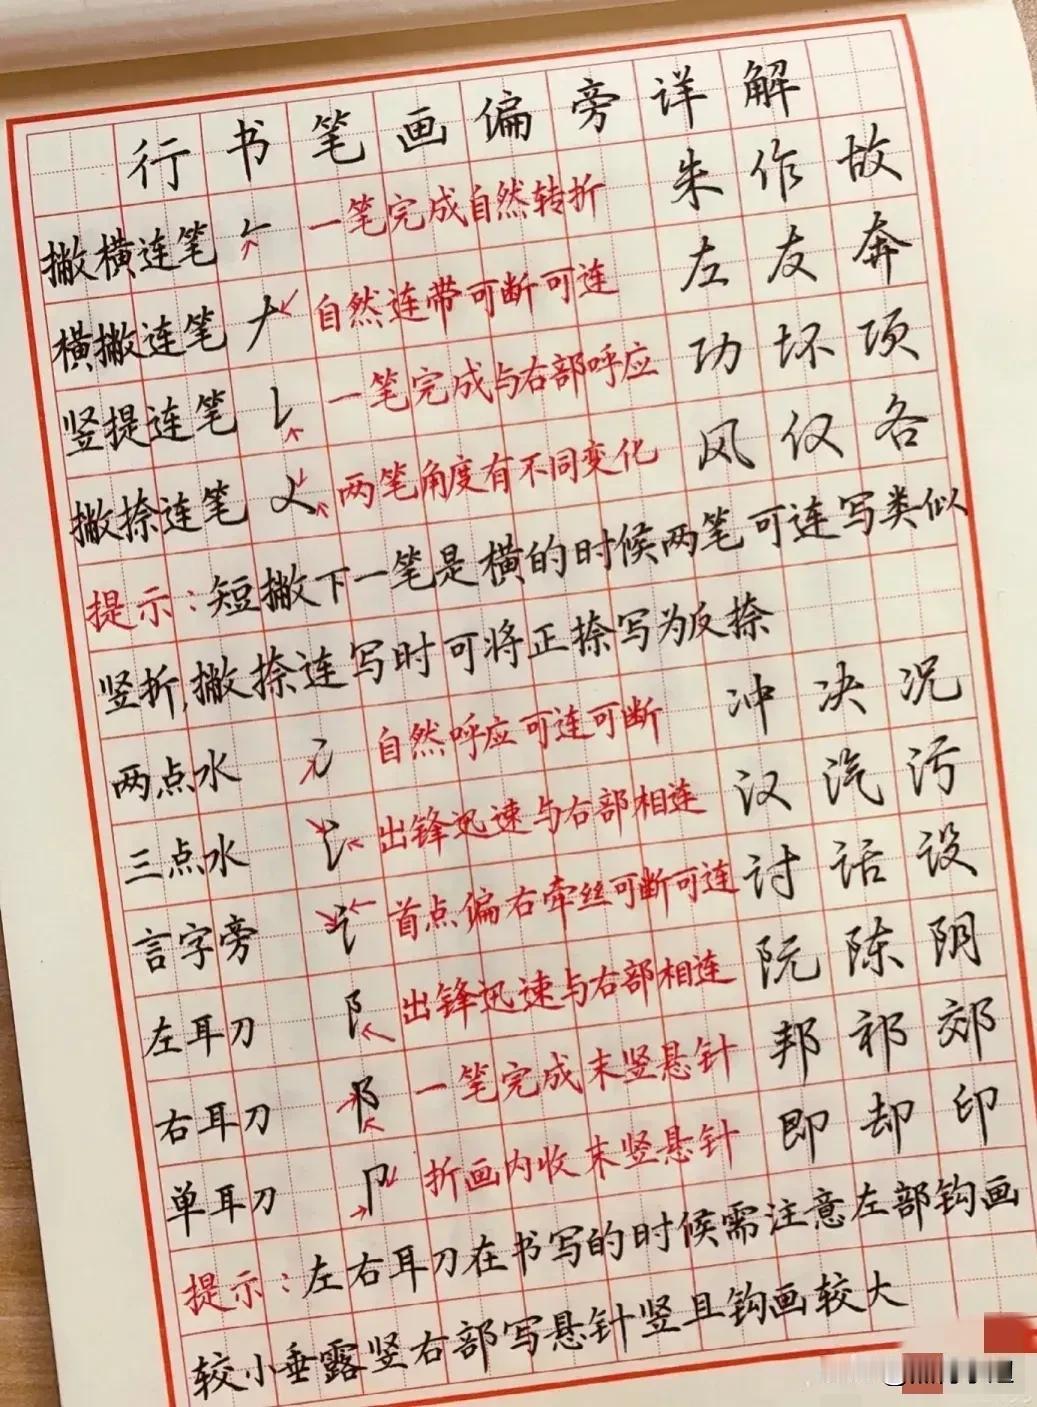 行书笔画偏旁详解
撇横连笔 𠂉 一笔完成自然转折 朱作故
横撇连笔 𠂇 自然连带可断可连 左友奔
竖提连笔 一笔完成与右部呼应 功坏项
撇捺连笔 两笔角度有不同变化 风仪各
提示:短撇下一笔是横的时候两笔可连写类似
竖折,撇捺连写时可将正捺写为反捺
两点水 冫 自然呼应可连可断 冲决况
三点水 氵 出锋迅速与右部相连 汉汽污
言字旁 讠 首点偏右牵丝可断可连 讨话设
左耳刀 阝 出锋迅速与右部相连 阮陈阴
右耳刀 阝 一笔完成末竖悬针 邦祁郊
单耳刀 卩 折画内收末竖悬针 即却印
提示:左右耳刀在书写的时候需注意左部钩画
较小垂露竖右部写悬针竖且钩画较大